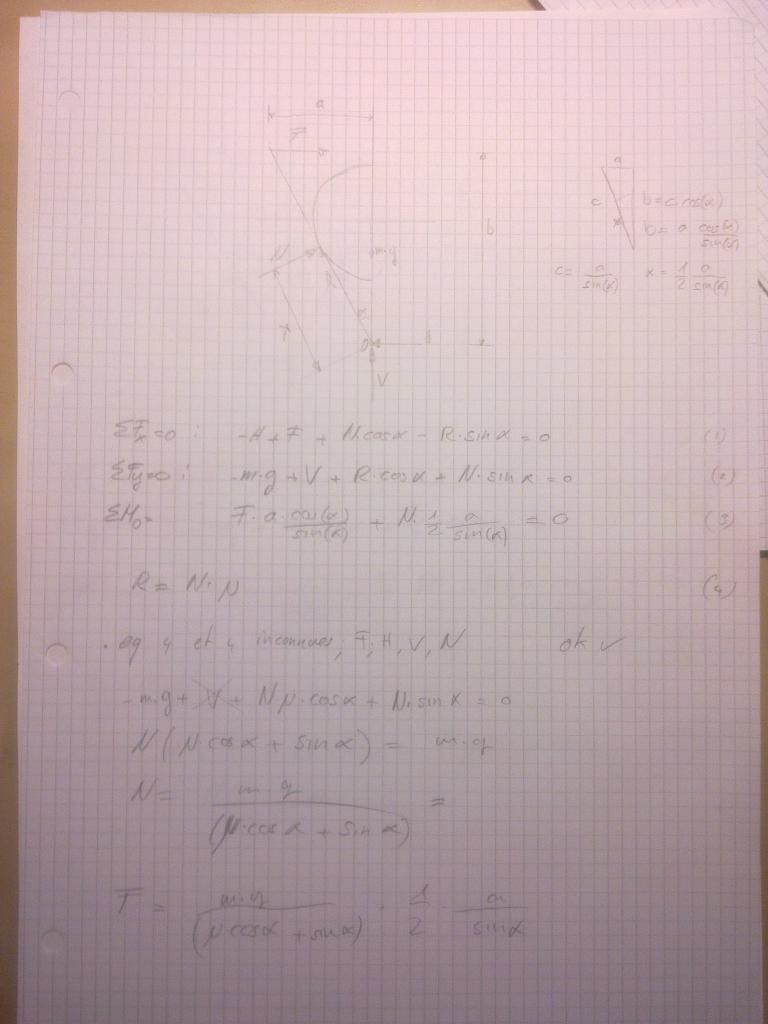 a
F
N
m·g
R
x
b
O
V
a
c
x
b = c·cos(α)
b = a cos(α)/sin(α)
c = a/sin(α) x = 1/2 a/sin(α)
ΣFx=0 : -H + F + N·cosα - R·sinα = 0 (1)
ΣFy=0 : -m·g + V + R·cosα + N·sinα = 0 (2)
ΣM₀= F·a·cos(α)/sin(α) + N·1/2 a/sin(α) = 0 (3)
R = N·μ (4)
· eq 4 et 4 inconnues; F, H, V, N ok ✓
-m·g + V + N·μ·cosα + N·sinα = 0
N(μ·cosα + sinα) = m·g
N = m·g/(μ·cosα + sinα) =
F = m·g/(μ·cosα + sinα) · 1/2 · a/sinα